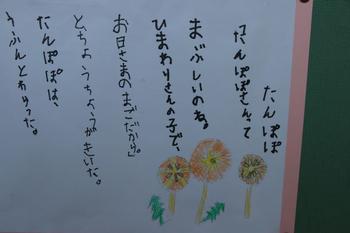 たんぽぽ
「たんぽぽさんって
まぶしいのね。
ひまわりさんの子で、
お日さまのまごだから。」
と、ちょうちょうがきいた。
たんぽぽは、
うふんとわらった。